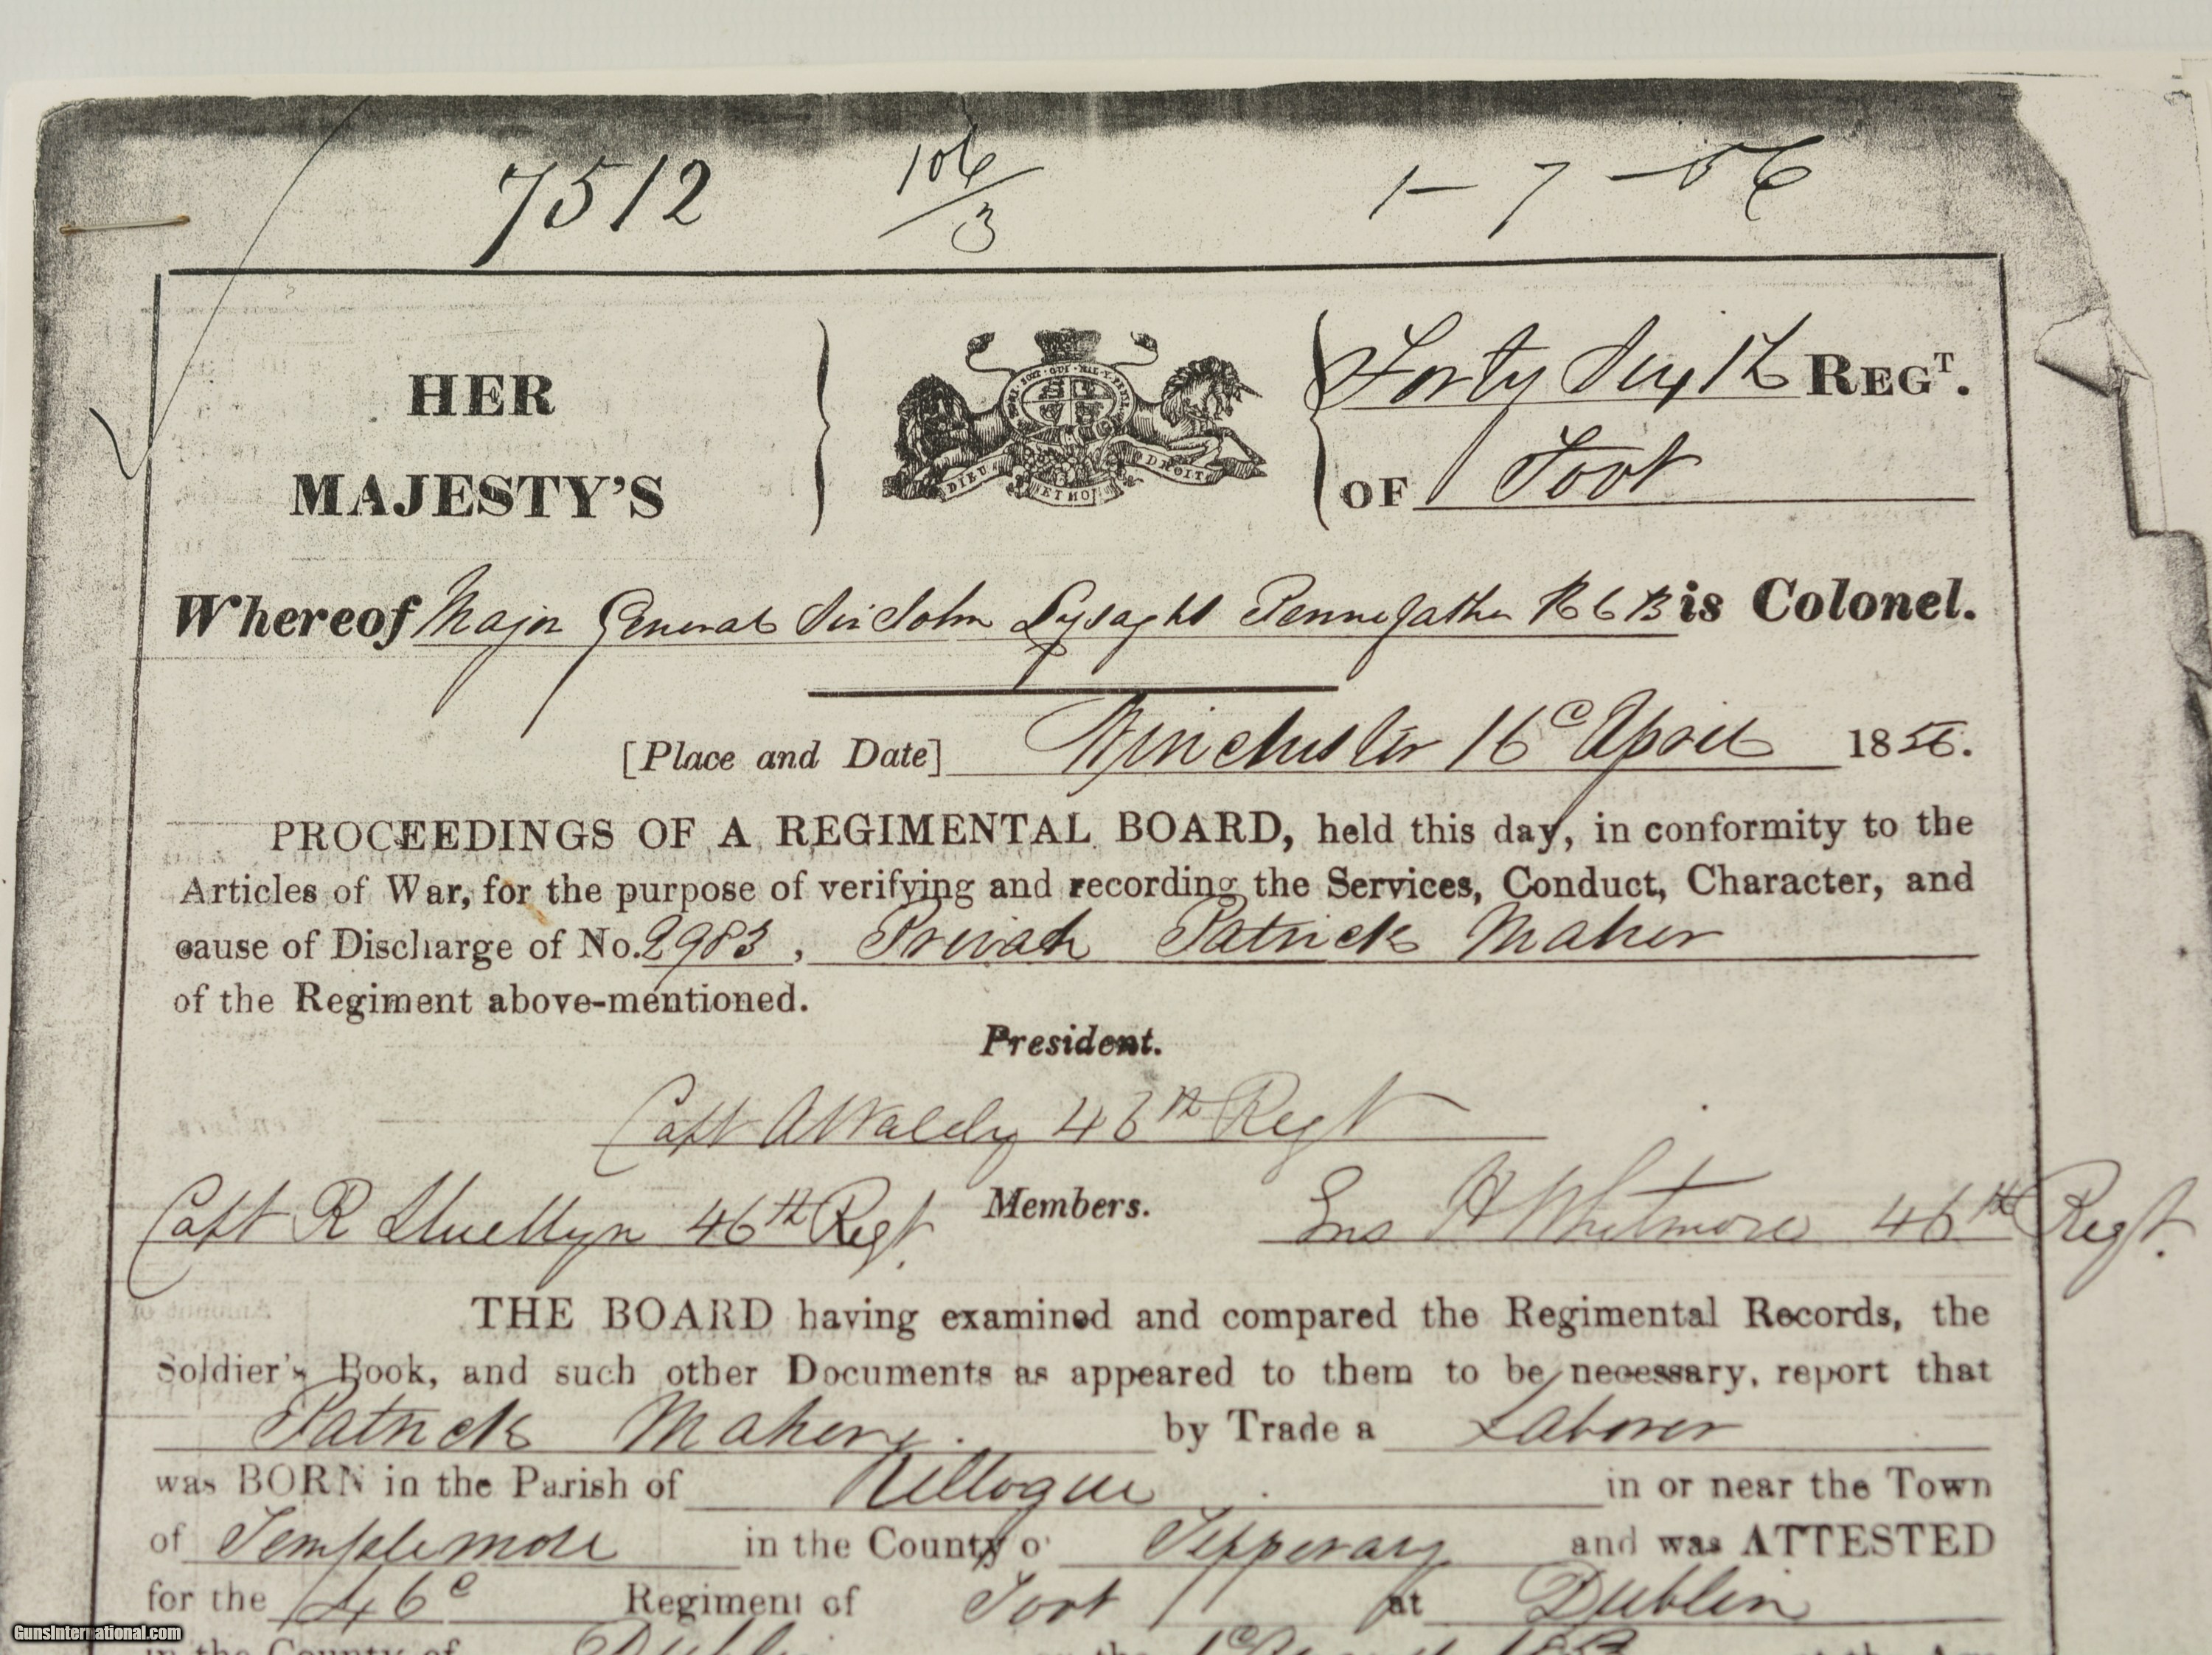 7512 106/3 1-7-56
HER
MAJESTY'S
DIEU ET MON DROIT
Forty Sixth REGT.
OF Foot
Whereof Major General Sir John Lysaght Pennefather KCB is Colonel.
[Place and Date] Winchester 16e April 1856.
PROCEEDINGS OF A REGIMENTAL BOARD, held this day, in conformity to the
Articles of War, for the purpose of verifying and recording the Services, Conduct, Character, and
cause of Discharge of No. 2983, Private Patrick Maher
of the Regiment above-mentioned.
President.
Capt A Waldy 46th Regt
Capt R Lluellyn 46th Regt. Members. Ens H Whitmore 46th Regt.
THE BOARD having examined and compared the Regimental Records, the
Soldier's Book, and such other Documents as appeared to them to be necessary, report that
Patrick Maher by Trade a Laborer
was BORN in the Parish of Killogue in or near the Town
of Templemore in the County o Tipperary and was ATTESTED
for the 46e Regiment of Foot at Dublin
in the County of Dublin
GunsInternational.com